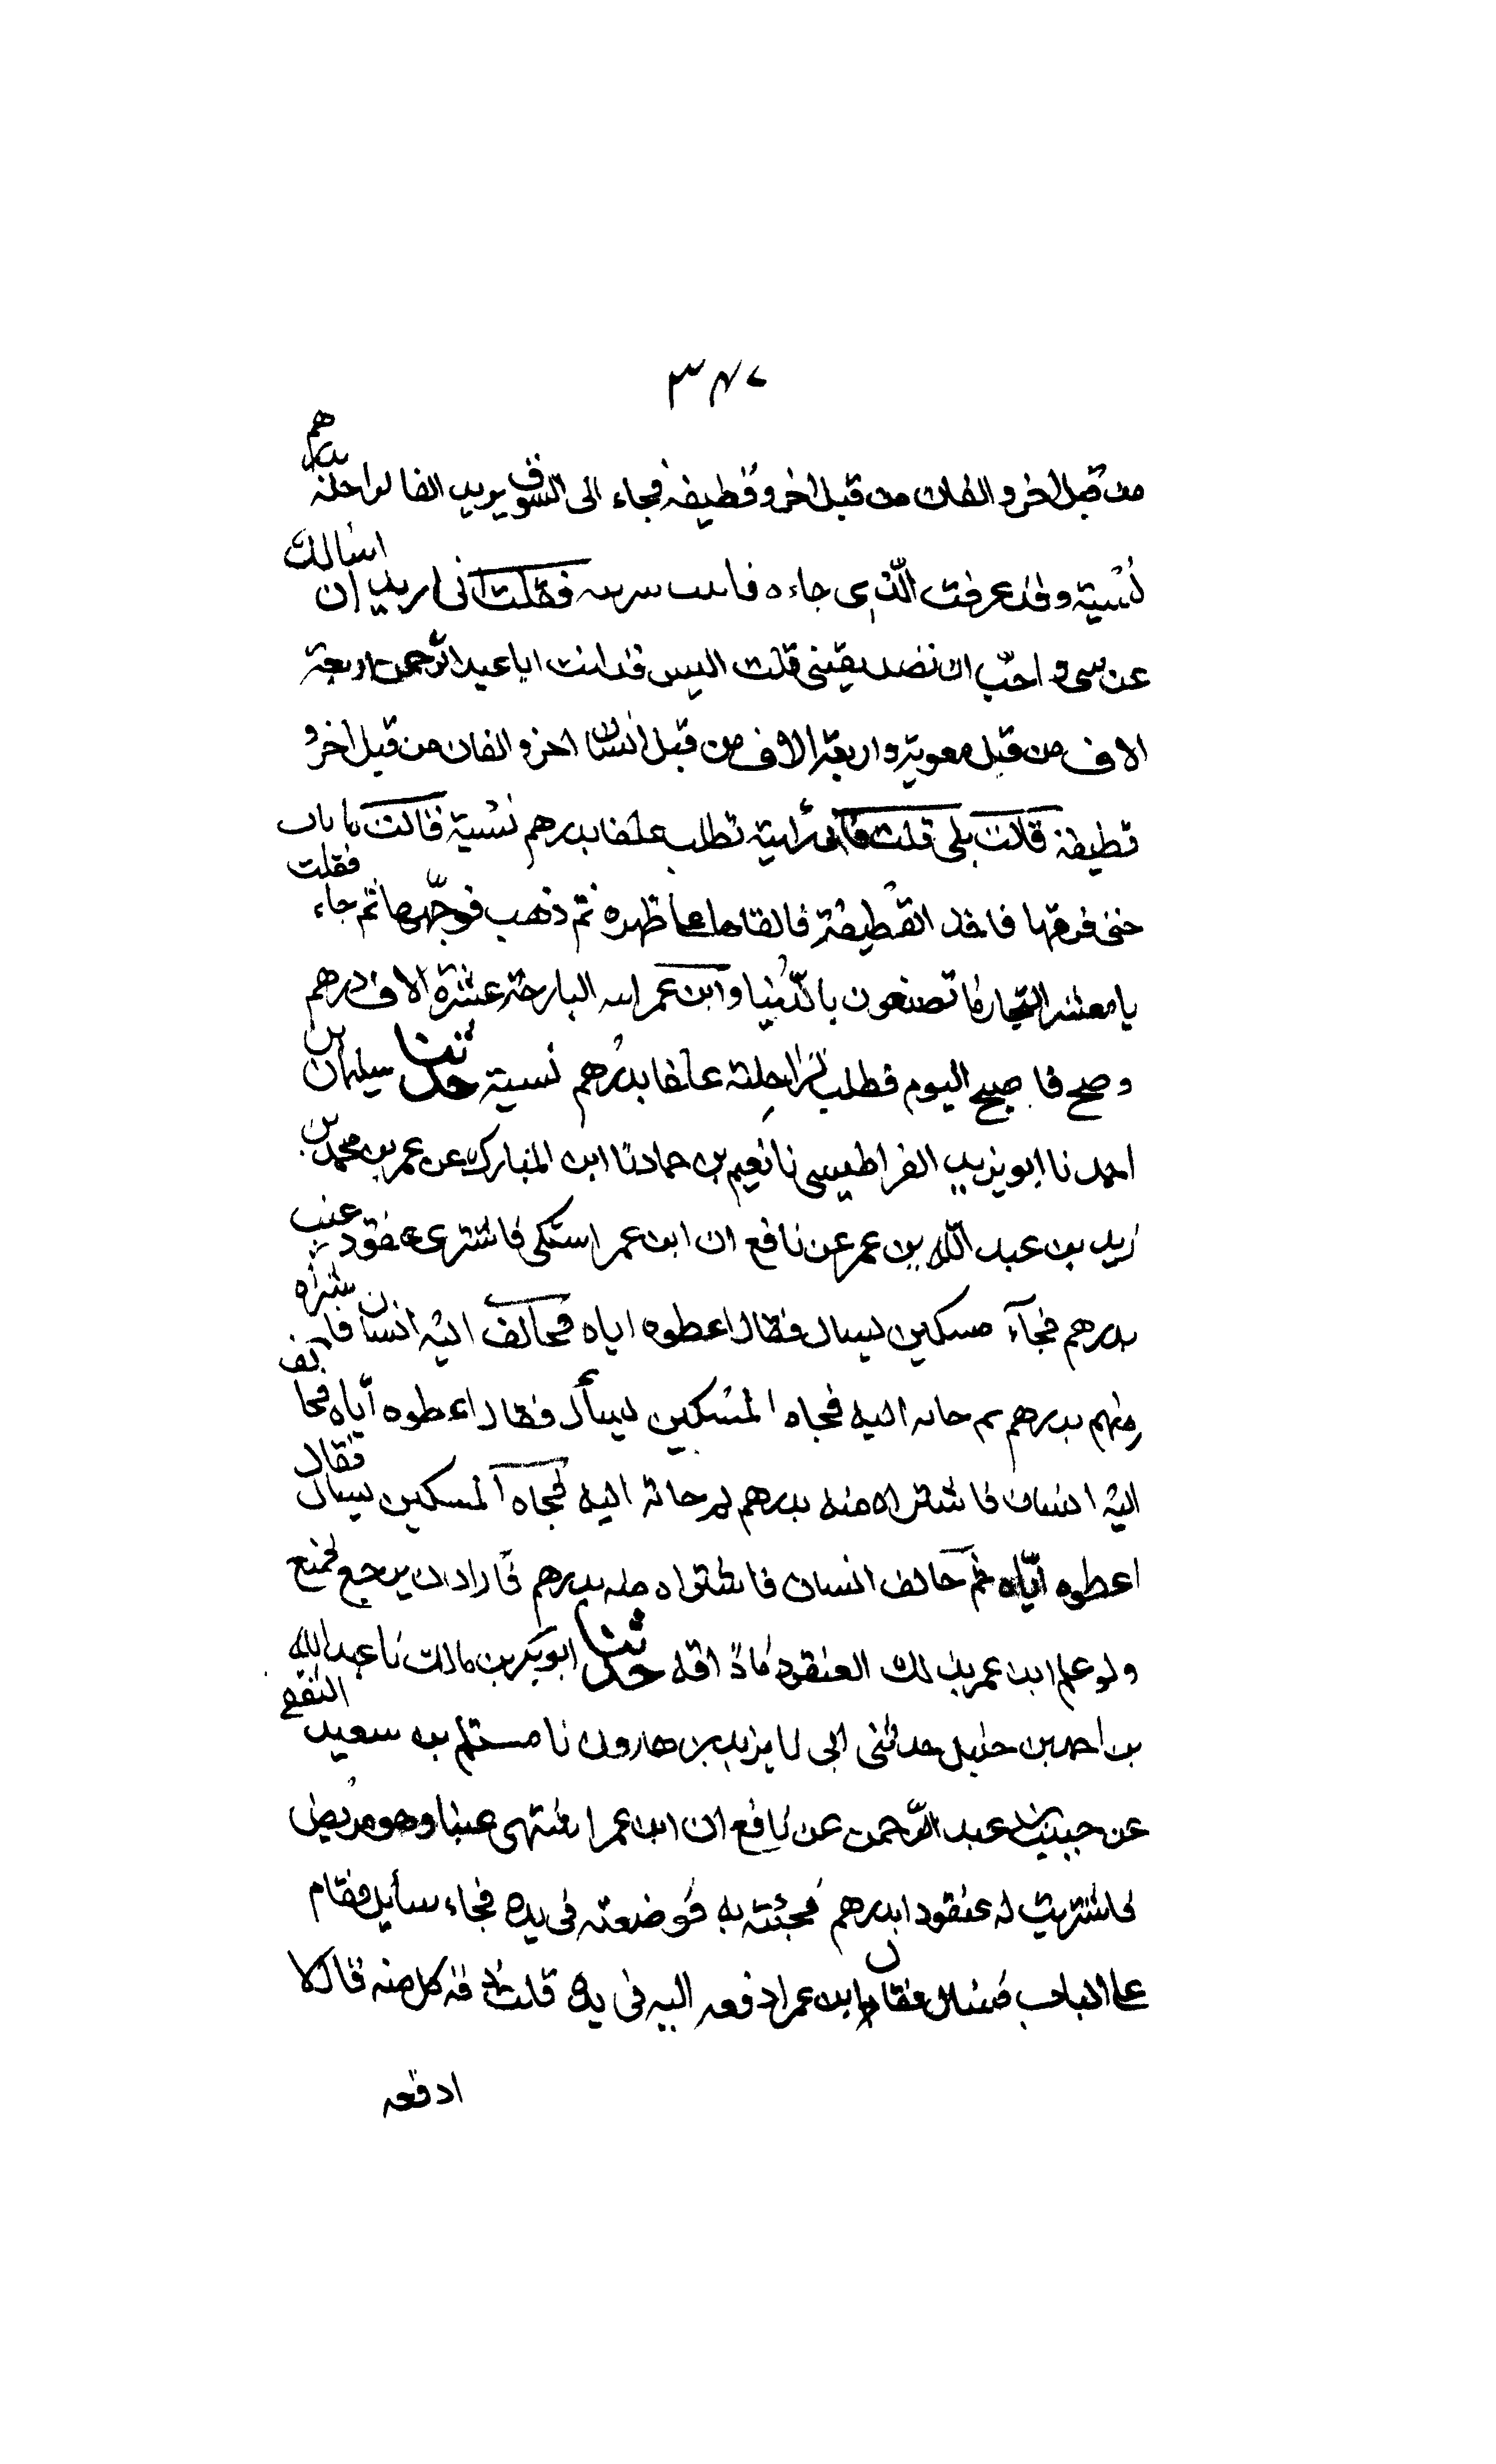 ٣٤٧
من قبل اخر والفان من قبل اخر وقطيفة فجاء الى السوق يريد الفا لراحلته بدرهم
نسية وقد عرفت الذى جاءه فاتيت سريته فقلت انى اريد ان اسالك
عن شى واحب ان تصدقينى قلت اليس قد اتت ابا عبد الرحمن اربعة
الاف من قبل معوية واربعة الاف من قبل انسان اخر والفان من قبل اخر و
قطيفة قالت بلى قلت فانى رايته تطلب علفا بدرهم نسية قالت ما بات
حتى فرقها فاخذ القطيفة فالقاها على ظهره ثم ذهب فوجهها ثم جاء فقلت
يا معشر التجار ما تصنعون بالدنيا وابن عمر اتته البارحة عشرة الاف درهم
وضح فاصبح اليوم فطلب لراحلته علفا بدرهم نسية حدثنا سليمان بن
احمد نا ابو يزيد القراطيسى نا نعيم بن حماد نا ابن المبارك عن عمر بن محمد بن
زيد بن عبد الله بن عمر عن نافع ان ابن عمر اشتكى فاشترى عنقود عنب
بدرهم فجآء مسكين ليسال فقال اعطوه اياه فخالف اليه انسان فاشتراه
منهم بدرهم ثم جاء به اليه فجاه المسكين ليسأل فقال اعطوه اياه فخالف
اليه انسان فاشتراه منه بدرهم ثم جاء به اليه فجاه المسكين ليسال فقال
اعطوه اياه ثم خالف انسان فاشتراه منه بدرهم فاراد ان يرجع فمنع
ولو علم ابن عمر بذلك العنقود ما ذاقه حدثنا ابو بكر بن مالك نا عبد الله
بن احمد بن حنبل حدثنى ابى نا يزيد بن هارون نا مستلم بن سعيد الثقفى
عن حبيب بن عبد الرحمن عن نافع ان ابن عمر اشتهى عنبا وهو مريض
فاشتريت له عنقودا بدرهم فجئته به فوضعته فى يده فجاء سايل فقام
على الباب فسال فقال ابن عمر ادفعه اليه فى يده قلت ذقه كل منه قال لا
ادفعه